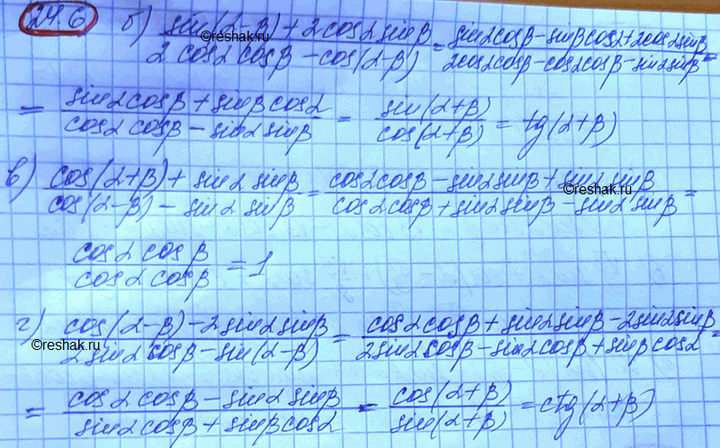 24.6 б) sin(α-β)+2cosα sinβ / 2cosα cosβ-cos(α-β) = sinα cosβ-sinβ cosα+2cosα sinβ / 2cosα cosβ-cosα cosβ-sinα sinβ =
= sinα cosβ+sinβ cosα / cosα cosβ-sinα sinβ = sin(α+β) / cos(α+β) = tg(α+β)
в) cos(α+β)+sinα sinβ / cos(α-β)-sinα sinβ = cosα cosβ-sinα sinβ+sinα sinβ / cosα cosβ+sinα sinβ-sinα sinβ =
cosα cosβ / cosα cosβ = 1
г) cos(α-β)-2sinα sinβ / 2sinα cosβ-sin(α-β) = cosα cosβ+sinα sinβ-2sinα sinβ / 2sinα cosβ-sinα cosβ+sinβ cosα =
= cosα cosβ-sinα sinβ / sinα cosβ+sinβ cosα = cos(α+β) / sin(α+β) = ctg(α+β)
©reshak.ru
©reshak.ru
©reshak.ru
©reshak.ru